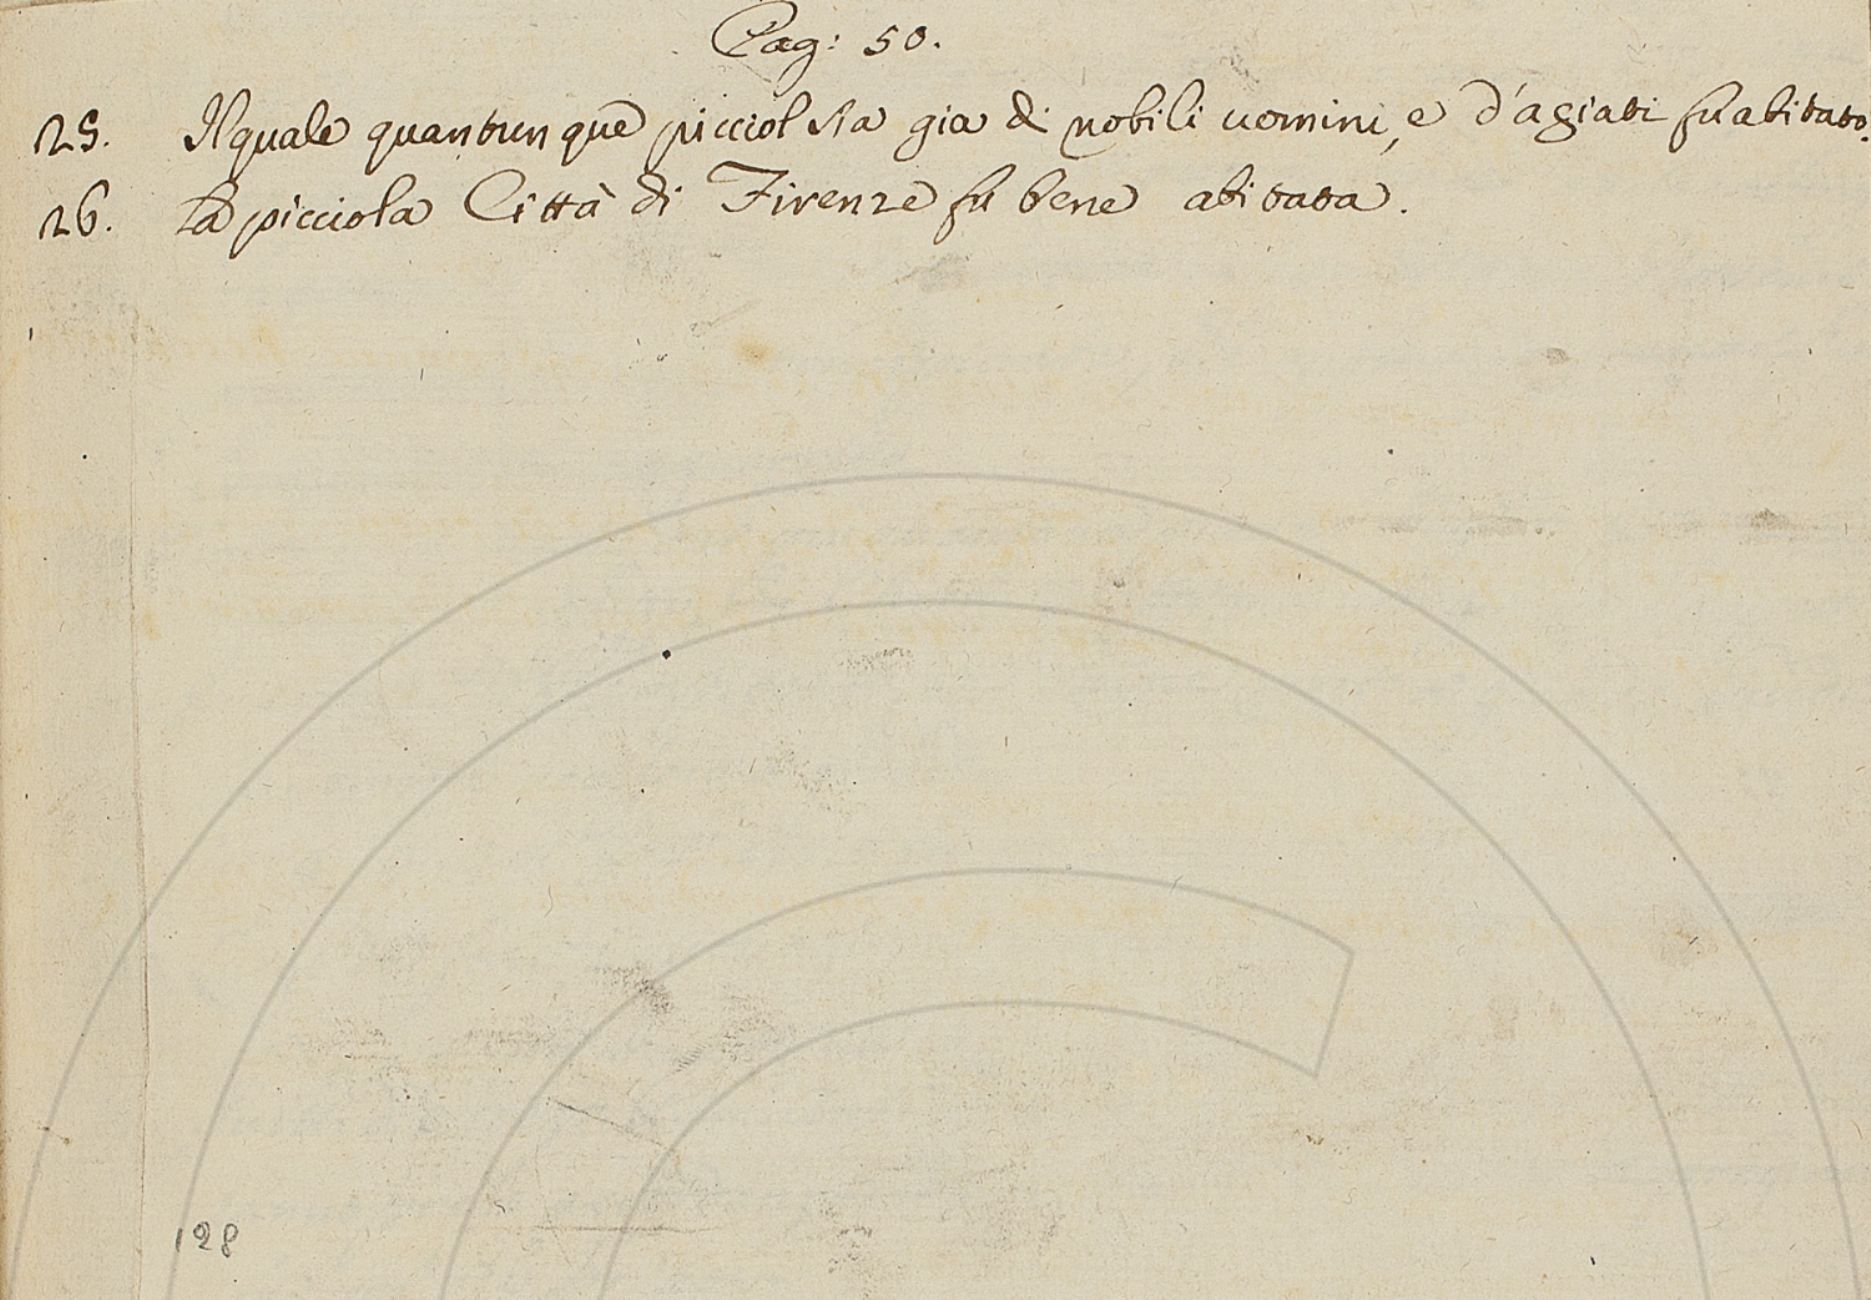 Pag: 50.
25. Il quale quantunque picciol sia gia di nobili uomini, e d'agiati fu abitato.
26. La picciola Città di Firenze fu bene abitata.
128